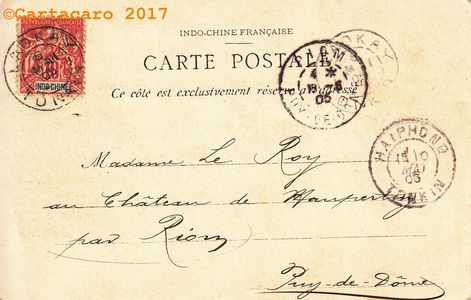 ©Cartacaro 2017
RÉPUBLIQUE FRANÇAISE
INDO-CHINE
LAOKAY
TONKIN
INDO-CHINE FRANÇAISE
CARTE POSTALE
Ce côté est exclusivement réservé à l'adresse
RIOM
PUY-DE-DÔME
LAOKAY
HAIPHONG
TONKIN
Madame Le Roy
au Château de Maupertuy
par Riom
Puy-de-Dôme